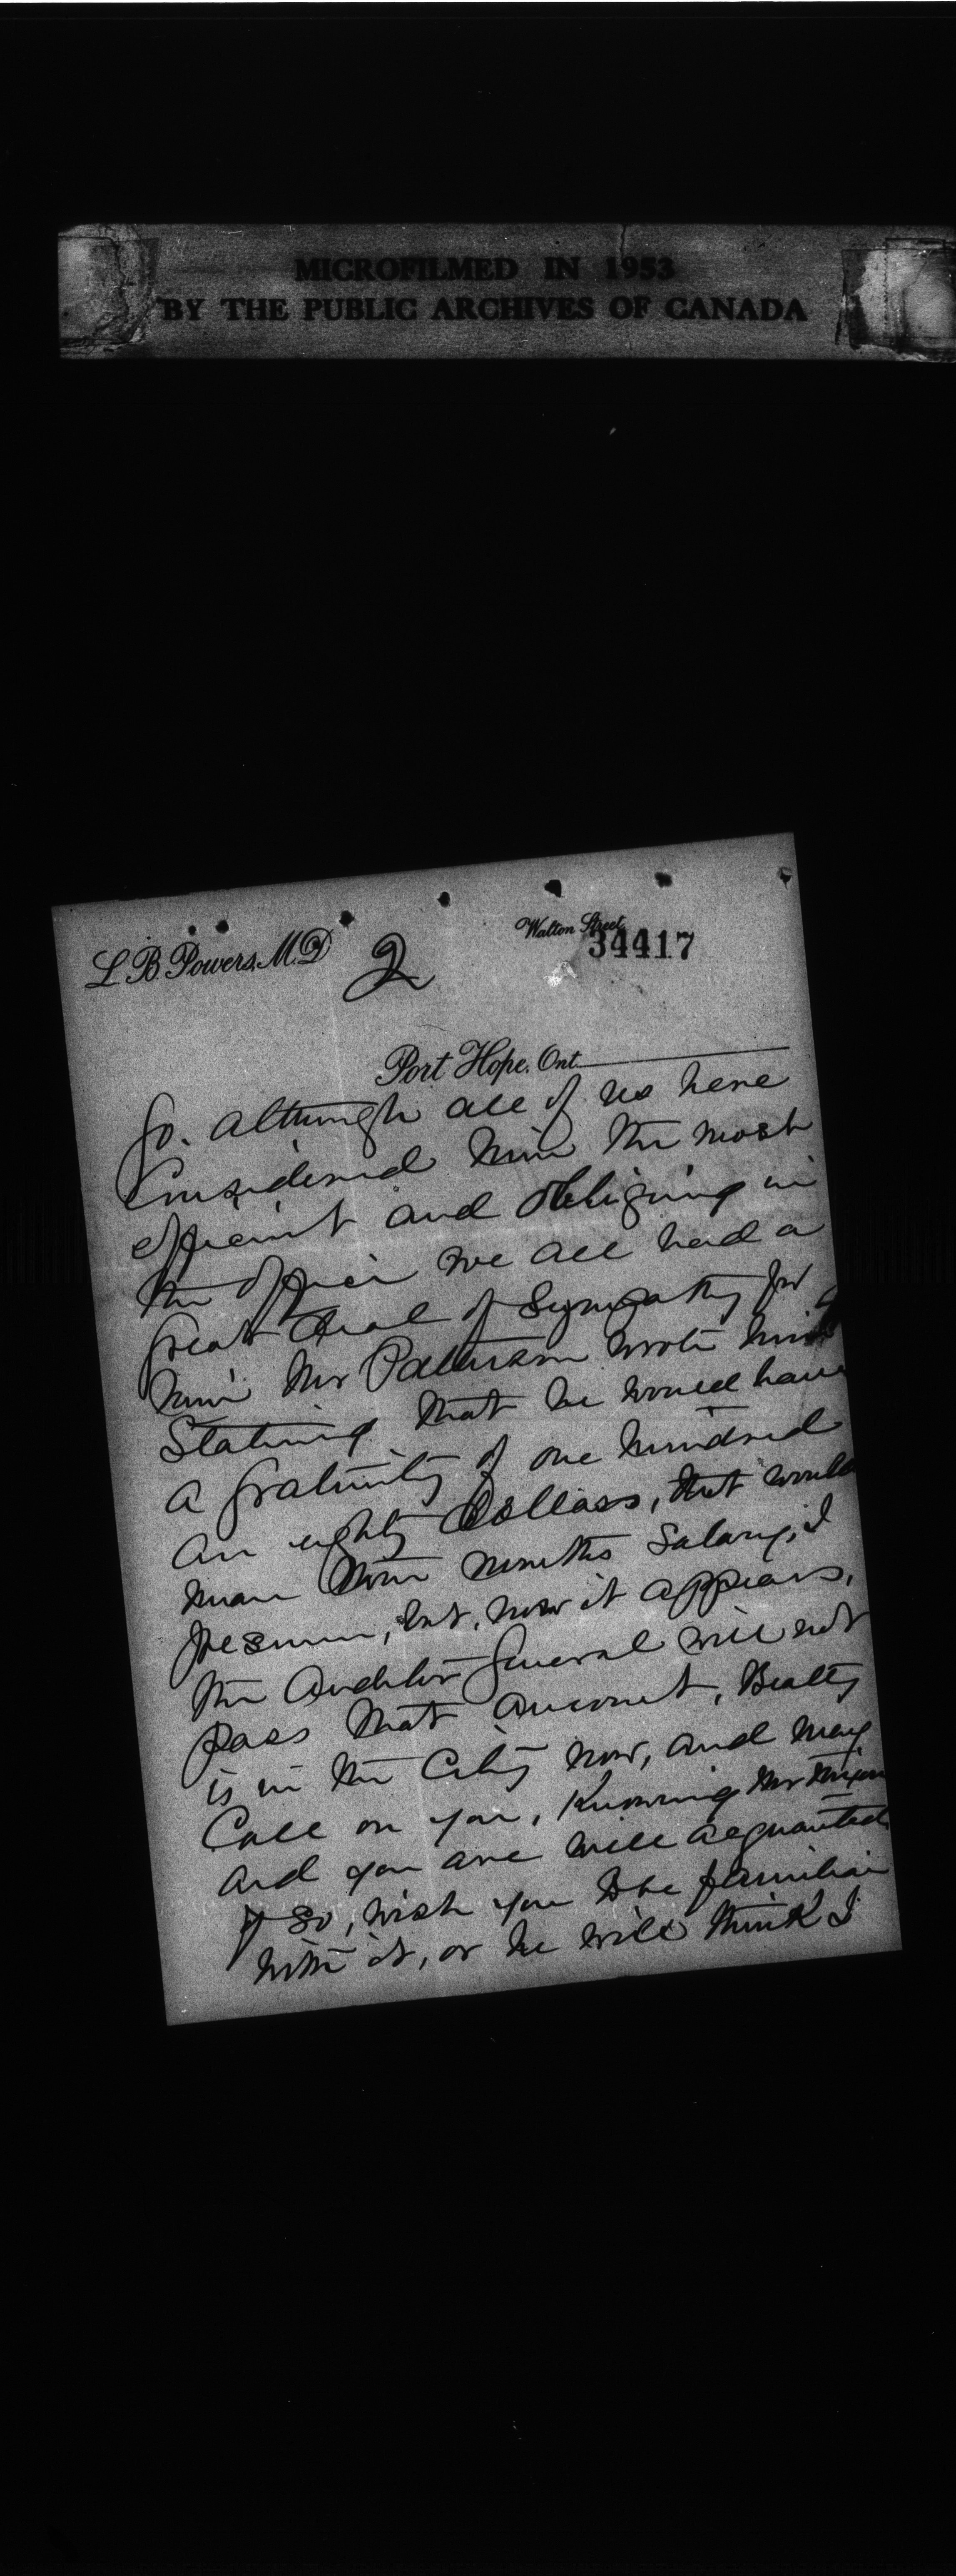 MICROFILMED IN 1953
BY THE PUBLIC ARCHIVES OF CANADA
Walton Street
34417
L. B. Powers, M.D
2
Port Hope, Ont.
go. although all of us here
Considered him the most
efficient and obliging in
the office we all had a
great deal of Sympathy for
him Mr Patterson wrote him
Stating that he would have
a gratuity of one hundred
an eighty dollars, that would
mean months Salary, I
presume, but, now it appears,
the Auditor General will not
pass that amount, Beatty
is in the City now, and may
Call on you, Knowing Mr
and you are well acquainted
if so, wish you to be familiar
with it, or he will think I